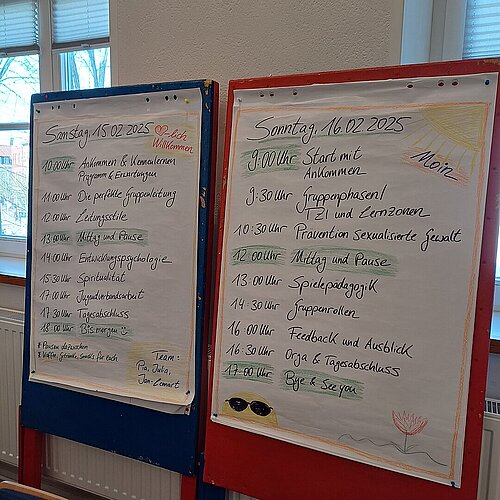 Samstag, 15.02.2025
♡-lich
Willkommen
10:00 Uhr Ankommen & Kennenlernen
Programm & Erwartungen
11:00 Uhr Die perfekte Gruppenleitung
12:00 Uhr Leitungsstile
13:00 Uhr Mittag und Pause
14:00 Uhr Entwicklungspsychologie
15:30 Uhr Spiritualität
17:00 Uhr Jugendverbandsarbeit
17:30 Uhr Tagesabschluss
18:00 Uhr Bis morgen ☺
* Pausen dazwischen
* Kaffee, Getränke, Snacks für euch
Team:
Pia, Julia,
Jan-Lennart
Sonntag, 16.02.2025
Moin
9:00 Uhr Start mit
Ankommen
9:30 Uhr Gruppenphasen/
TZI und Lernzonen
10:30 Uhr Prävention sexualisierte Gewalt
12:00 Uhr Mittag und Pause
13:00 Uhr Spielepädagogik
14:30 Uhr Gruppenrollen
16:00 Uhr Feedback und Ausblick
16:30 Uhr Orga & Tagesabschluss
17:00 Uhr Bye & See you